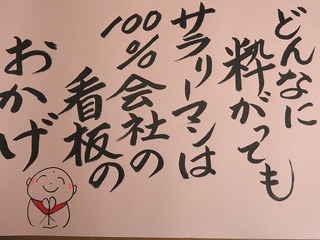 どんなに
粋がっても
サラリーマンは
100%会社の
看板の
おかげ